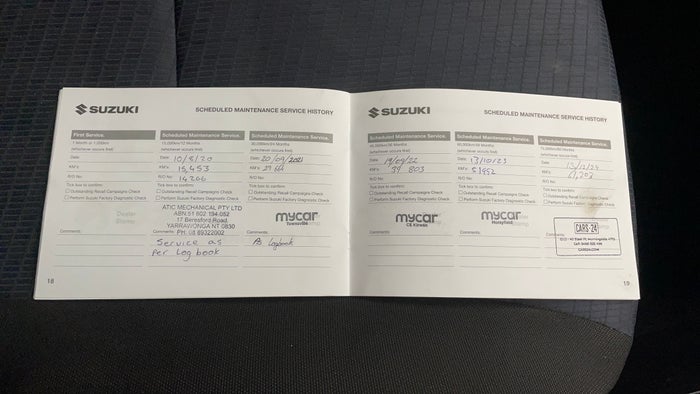 SUZUKI
SCHEDULED MAINTENANCE SERVICE HISTORY
First Service.
1 Month or 1,000km
(whichever occurs first)
Date:
KM's:
R/O No:
Tick box to confirm:
Outstanding Recall Campaigns Check
Perform Suzuki Factory Diagnostic Check
Dealer
Stamp
Comments:
Scheduled Maintenance Service.
15,000km/12 Months
(whichever occurs first)
Date: 10/8/20
KM's: 15,453
R/O No: 14266
Tick box to confirm:
Outstanding Recall Campaigns Check
Perform Suzuki Factory Diagnostic Check
ATIC MECHANICAL PTY LTD
ABN:51 802 194 052
17 Beresford Road,
YARRAWONGA NT 0830
Comments: PH: 08 89322002
Service as
per Log book
Scheduled Maintenance Service.
30,000km/24 Months
(whichever occurs first)
Date: 20/09/2021
KM's:
R/O No:
Tick box to confirm:
Outstanding Recall Campaigns Check
Perform Suzuki Factory Diagnostic Check
mycar
Townsville
Comments:
As Logbook
18
SUZUKI
SCHEDULED MAINTENANCE SERVICE HISTORY
Scheduled Maintenance Service.
45,000km/36 Months
(whichever occurs first)
Date: 19/09/22
KM's: 39 803
R/O No:
Tick box to confirm:
Outstanding Recall Campaigns Check
Perform Suzuki Factory Diagnostic Check
mycar
Kirwan
Comments:
Scheduled Maintenance Service.
60,000km/48 Months
(whichever occurs first)
Date: 13/10/23
KM's: 51952
R/O No:
Tick box to confirm:
Outstanding Recall Campaigns Check
Perform Suzuki Factory Diagnostic Check
mycar
Comments:
Scheduled Maintenance Service.
75,000km/60 Months
(whichever occurs first)
Date: 13/12/24
KM's:
R/O No:
Tick box to confirm:
Outstanding Recall Campaigns Check
Perform Suzuki Factory Diagnostic Check
CARS 24
CARS24.COM
Comments:
19